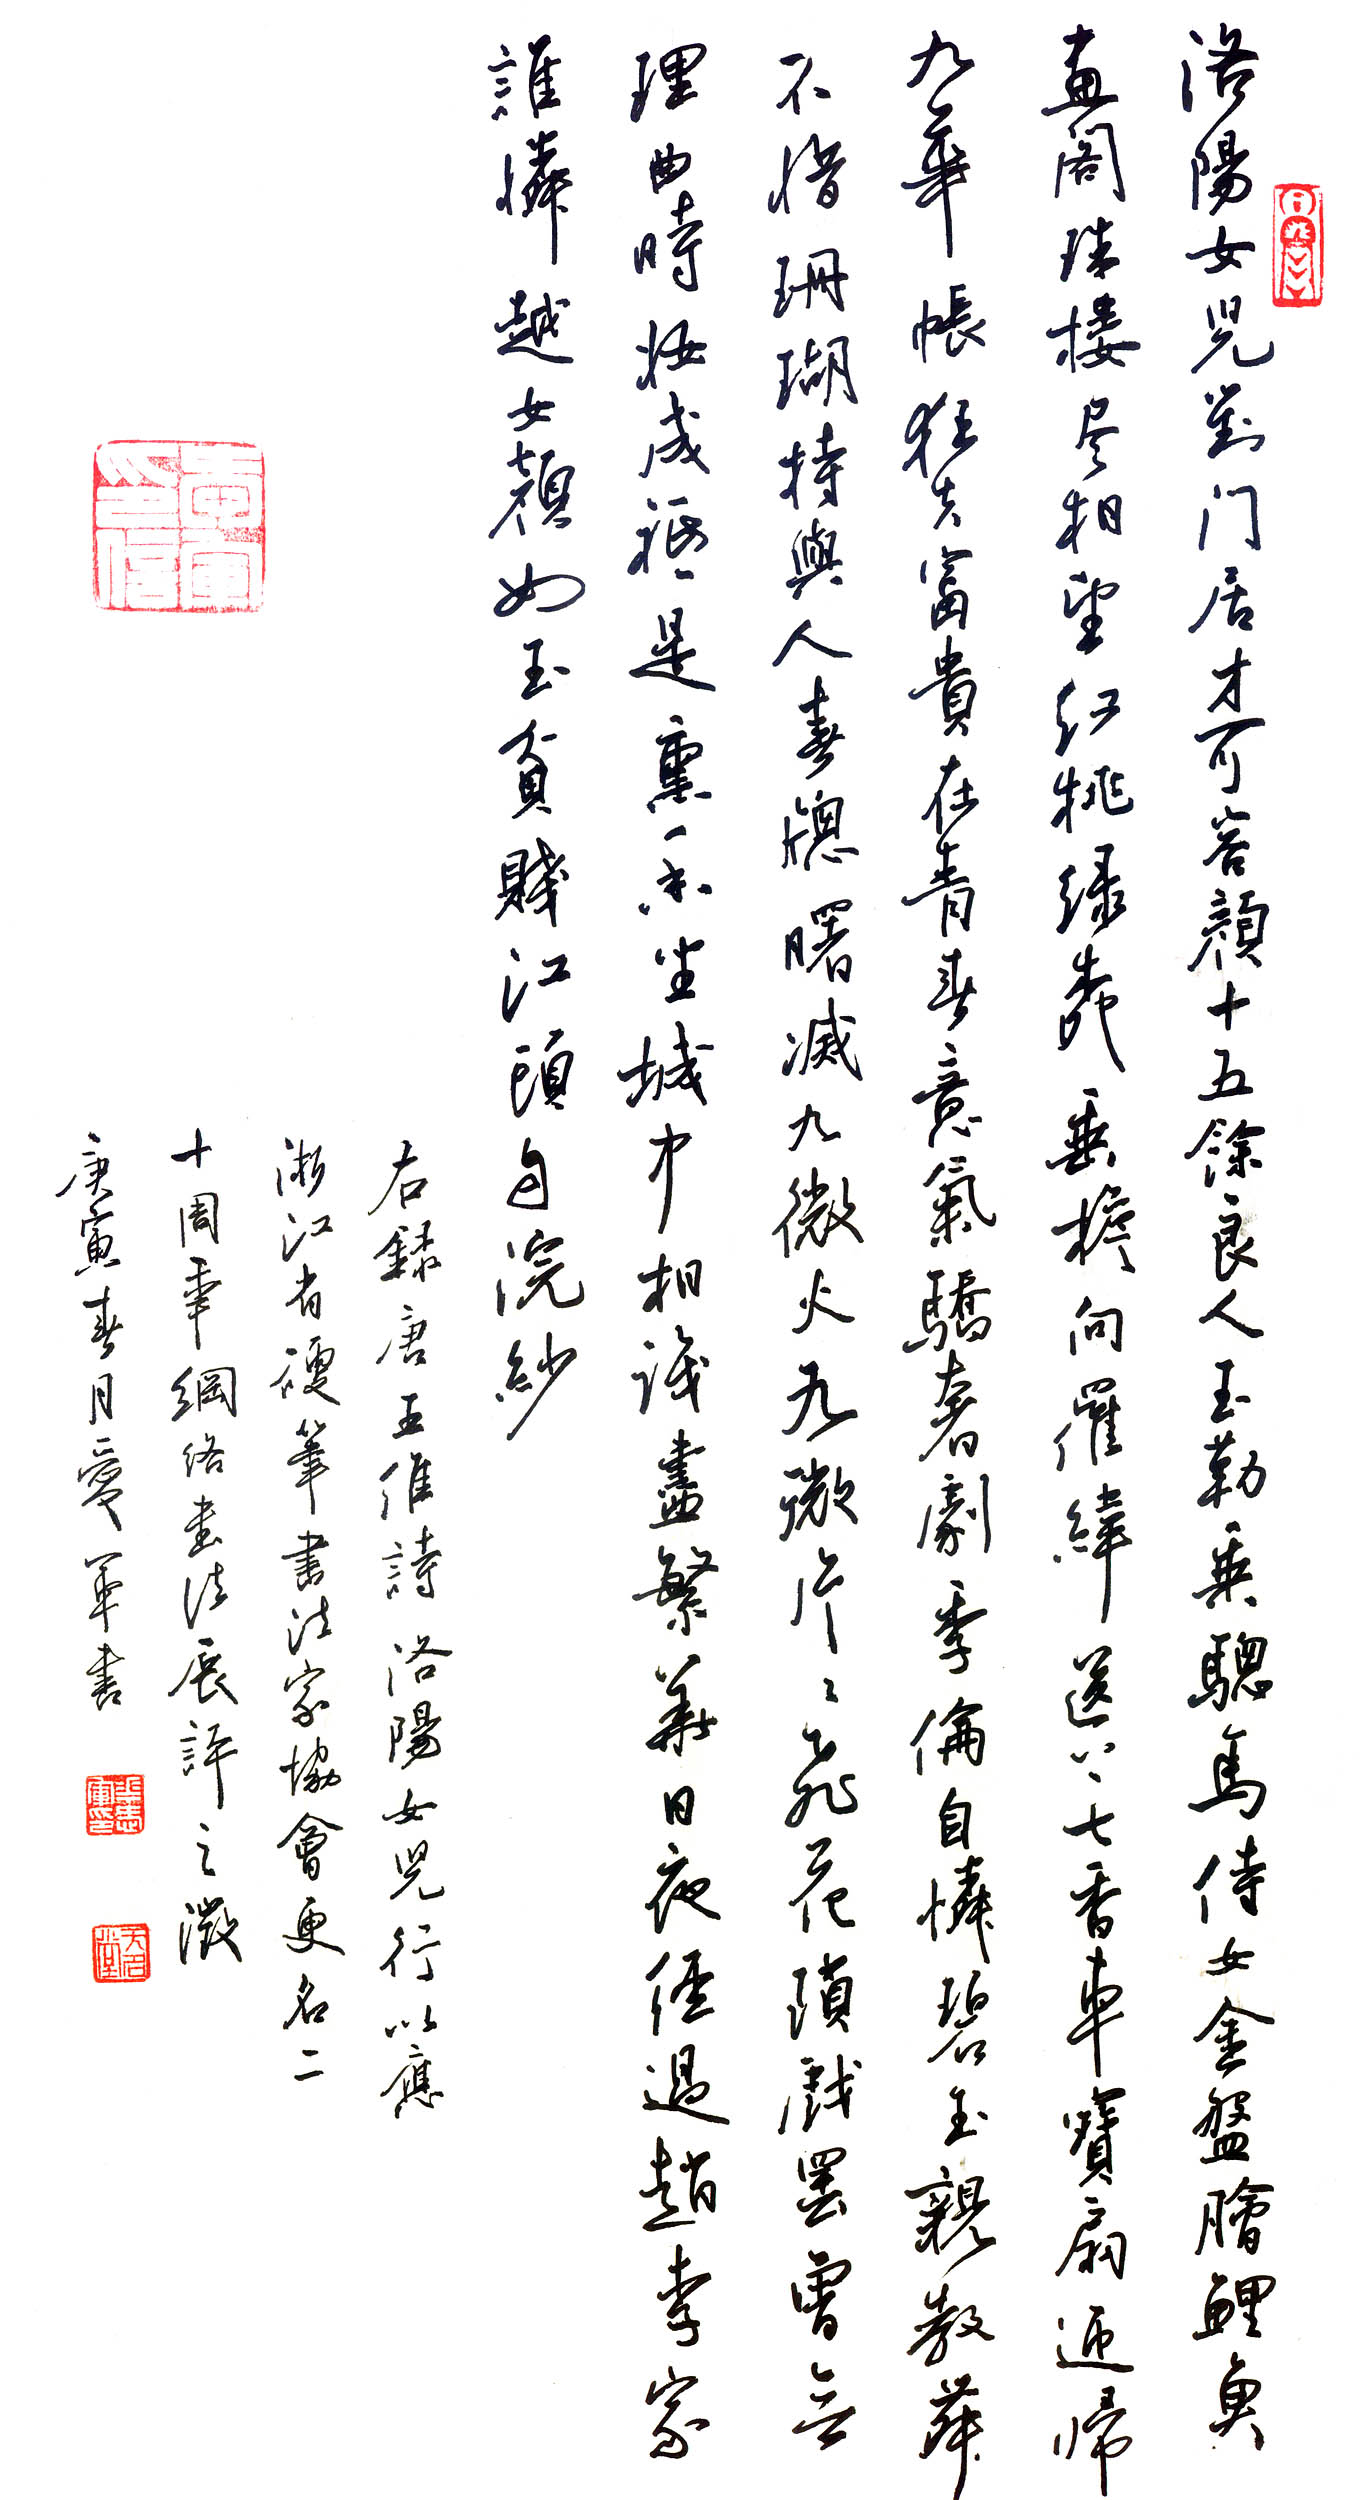 洛陽女兒對门居才可容顏十五餘良人玉勒乗驄馬侍女金盤膾鯉魚
畫阁珠楼尽相望红桃绿桞垂檐向羅幃送上七香車寳扇迎歸
九華帳狂夫富貴在青春意氣驕奢劇季倫自憐碧玉親教舞
不惜珊瑚持與人春牕曙滅九微火九微片〻飛花璅戲罷曾无
理曲時妝成祗是熏香坐城中相識盡繁華日夜經過趙李家
誰憐越女顏如玉貧賤江頭自浣紗
右録唐王維詩洛陽女兒行以應
浙江省硬筆書法家協會更名二
十周年網络书法展評之徵
庚寅春月愛軍書